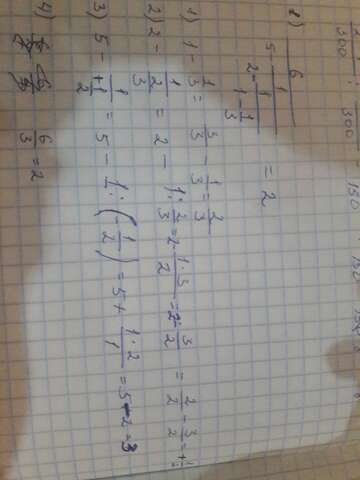 8) 6/(5 - 1/(2 - 1/(1 - 1/3))) = 2
1) 1 - 1/3 = 3/3 - 1/3 = 2/3
2) 2 - 1/(2/3) = 2 - 1 : 2/3 = 2 - 1·3/2 = 2 - 3/2 = 2/2 - 3/2 =
3) 5 - 1/(+1/2) = 5 - 1 : (-1/2) = 5 + 1·2/1 = 5 - 2 = 3
4) 6/3 = 2